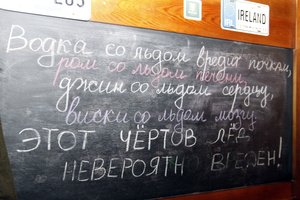 IRELAND
Водка со льдом вредит почкам,
ром со льдом печени,
джин со льдом сердцу,
виски со льдом мозгу.
ЭТОТ ЧЁРТОВ ЛЁД
НЕВЕРОЯТН ВРЕДЕН!